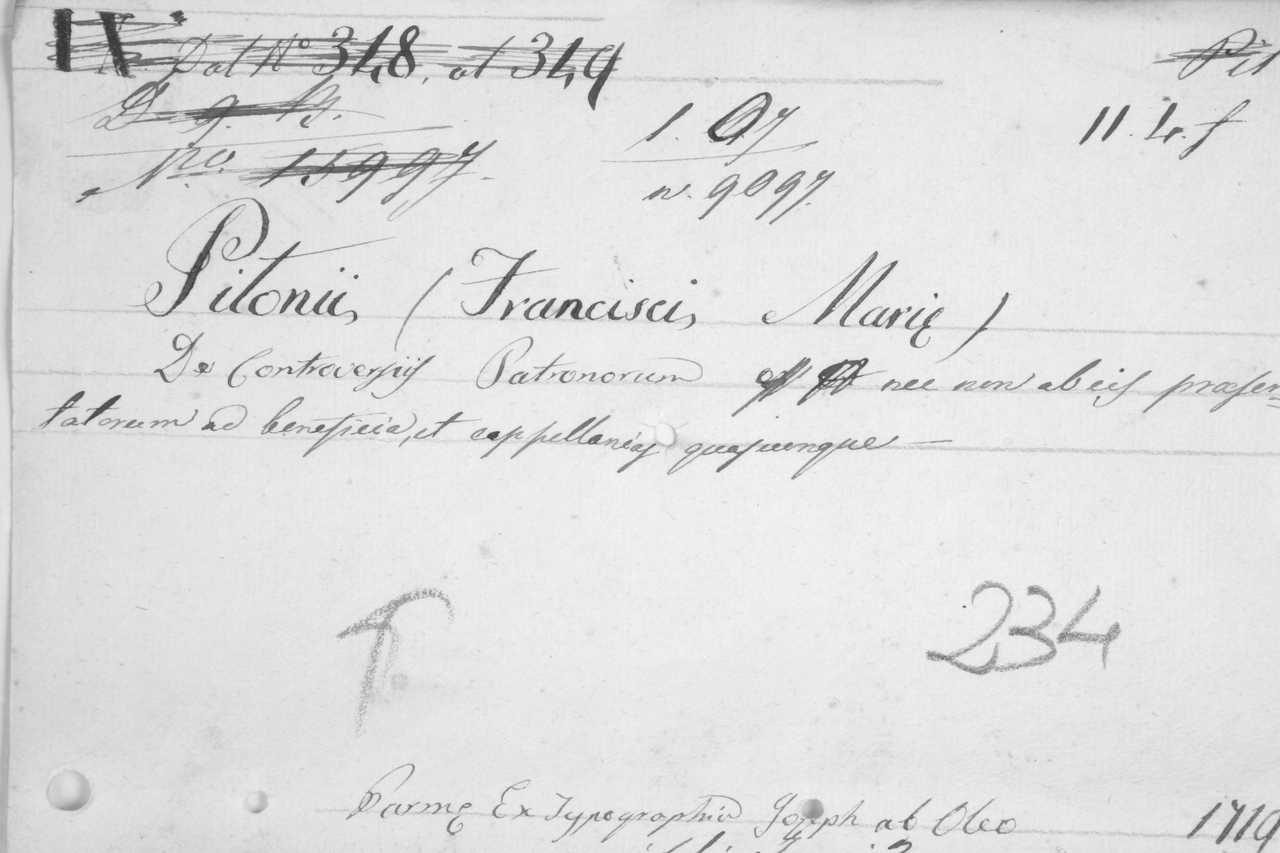 IX Dal N.o 348. al 349 Pit
D. g. B. 1. 97 11. 4. f
N.o 15997. n. 9097.
Pitonii, (Francisci, Marię)
De Controversiis Patronorum nec non ab eis præsen=
tatorum ad beneficia, et cappellanias quascunque —
T 234
Parmę Ex Typographia Joseph ab Oleo 1719